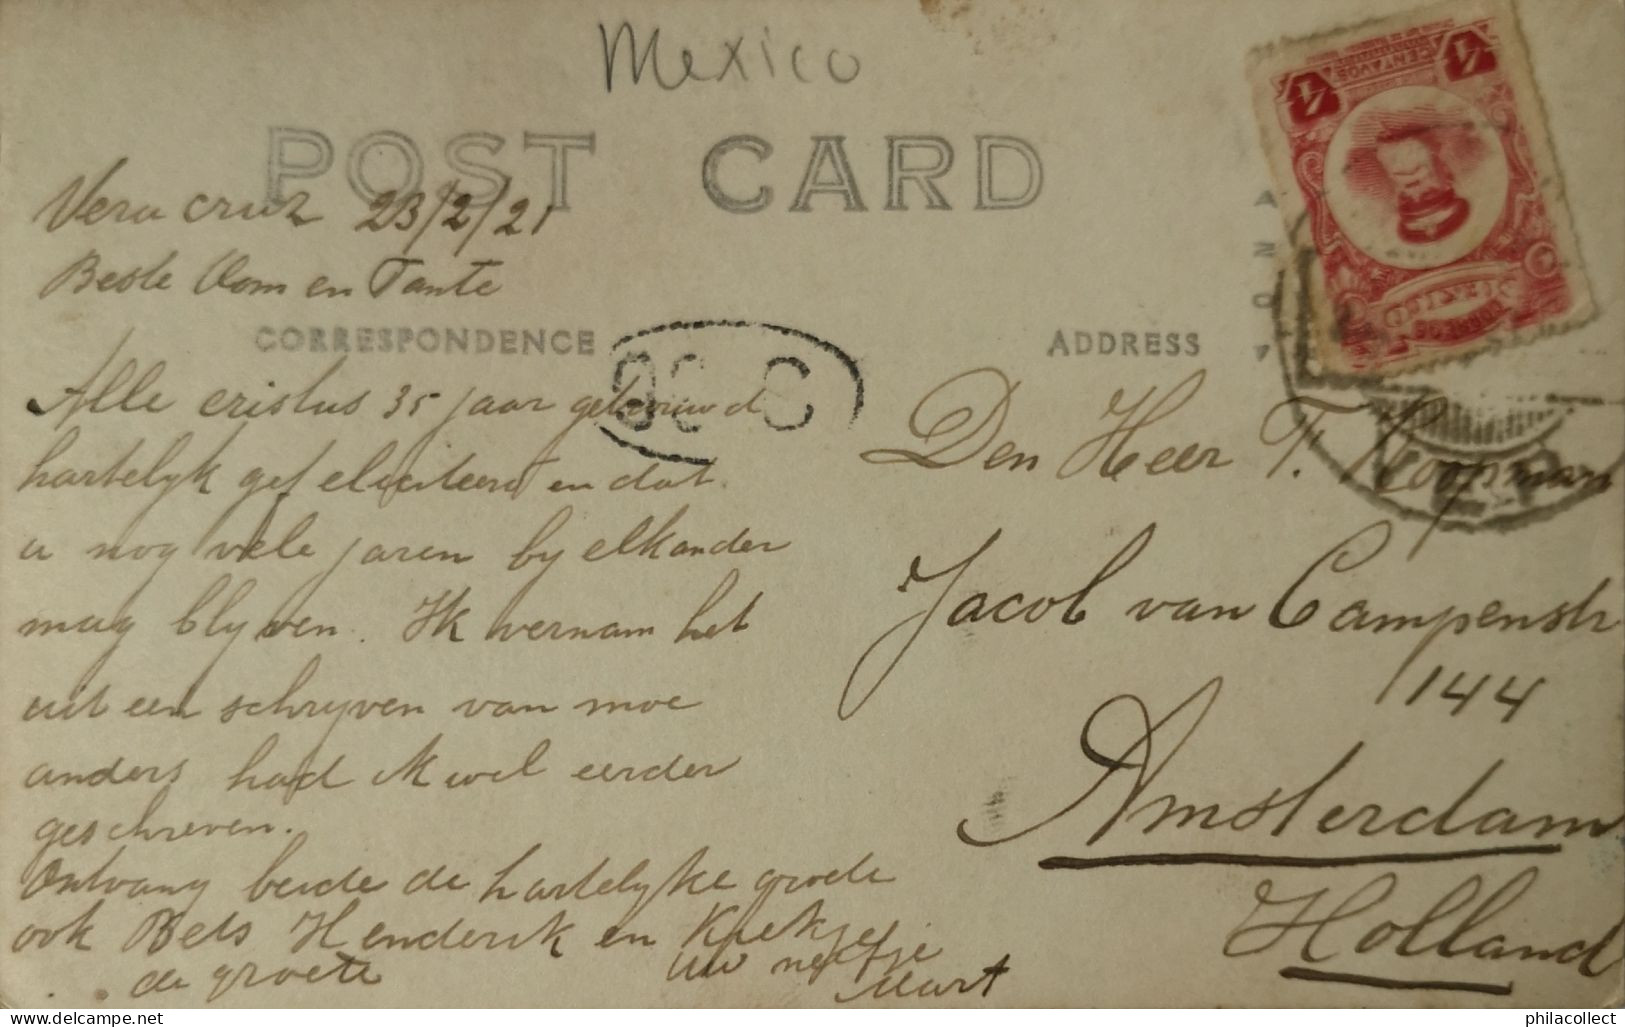 Mexico
POST CARD
Vera cruz 23/2/21
Beste Oom en Tante
CORRESPONDENCE
ADDRESS
AZO
Alle eristus 35 jaar getrouwd
hartelyk gefeliciteerd en dat
u nog vele jaren by elkander
mag blyven. Ik vernam het
uit een schryven van moe
anders had ik wel eerder
geschreven.
Ontvang beide de hartelyke groete
ook Bets Henderik en
de groete
uw neefje
Den Heer T. Koopman
Jacob van Campenstr
144
Amsterdam
Holland
4 CENTAVOS 4
CORREOS
MEXICO
philacollect
www.delcampe.net